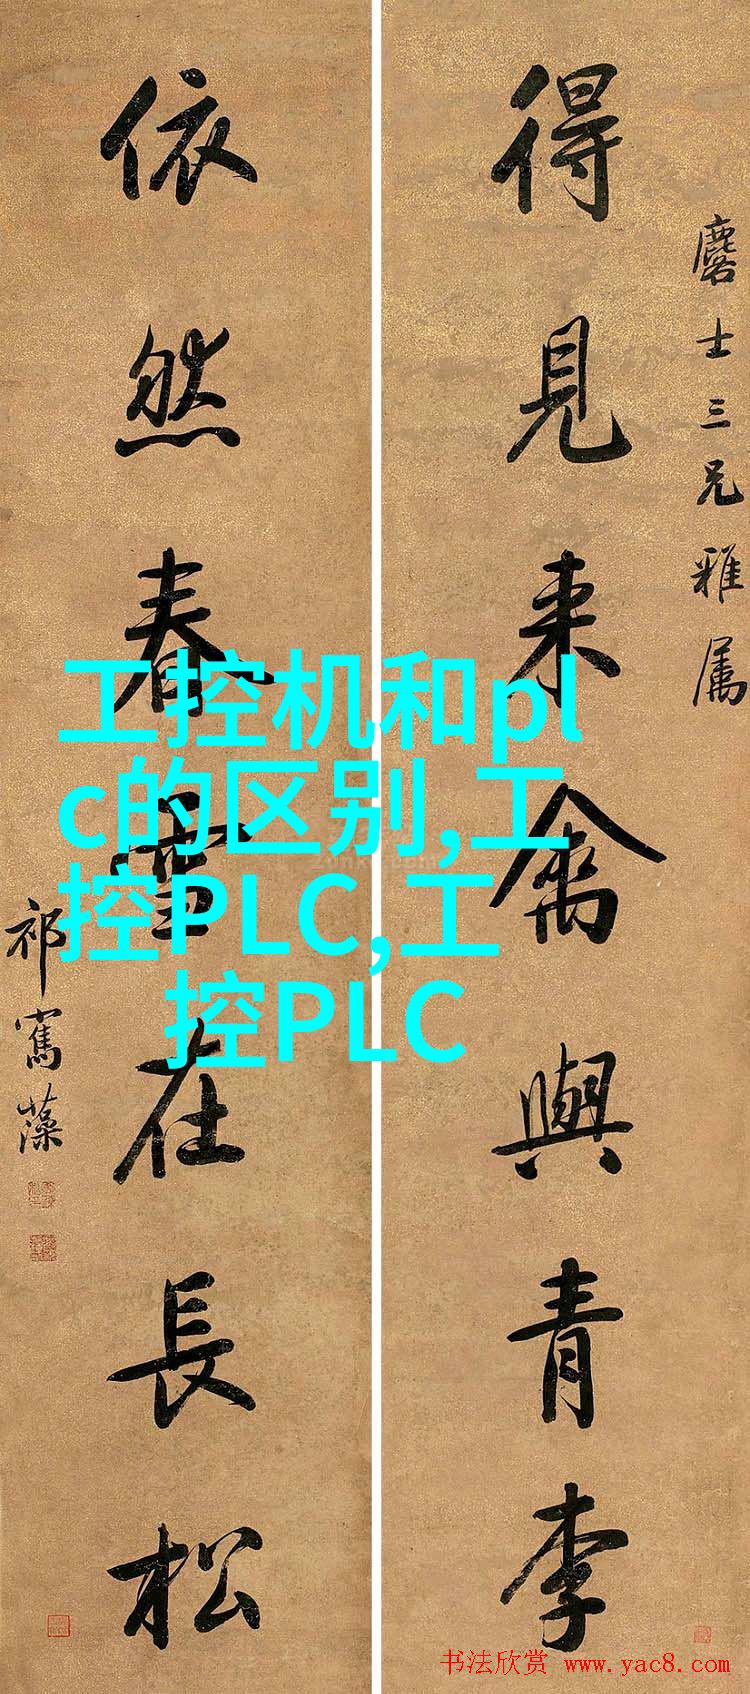 得見來禽與青李
麐士三兄雅屬
依然春雪在長松
祁寯藻
工控机和pl
c的区别,工
控PLC,工
控PLC
书法欣赏 www.yac8.com